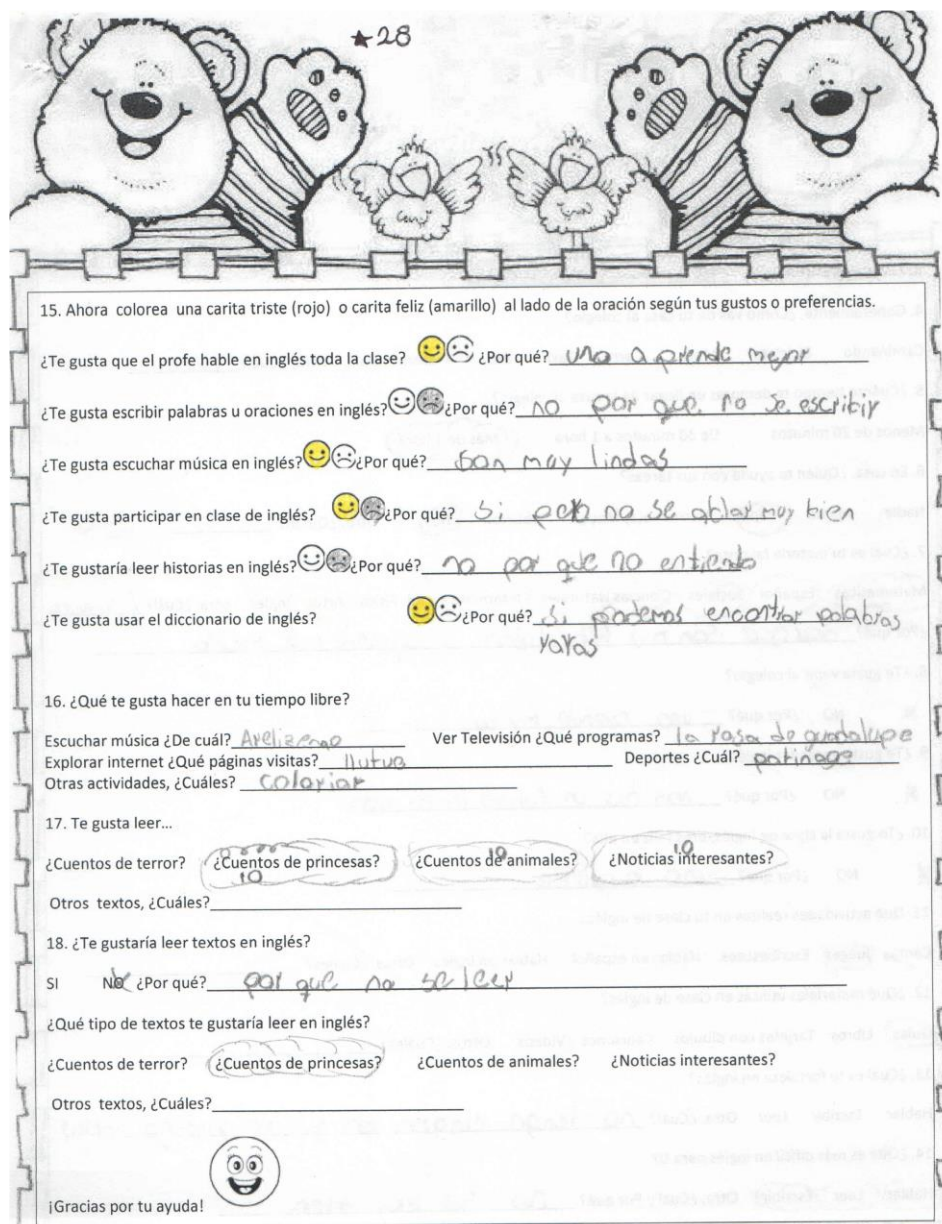 ★28
15. Ahora colorea una carita triste (rojo) o carita feliz (amarillo) al lado de la oración según tus gustos o preferencias.
¿Te gusta que el profe hable en inglés toda la clase? ¿Por qué? una aprende mejor
¿Te gusta escribir palabras u oraciones en inglés? ¿Por qué? no por que no se escribir
¿Te gusta escuchar música en inglés? ¿Por qué? son muy lindas
¿Te gusta participar en clase de inglés? ¿Por qué? si pero no se ablar muy bien
¿Te gustaría leer historias en inglés? ¿Por qué? no por que no entiendo
¿Te gusta usar el diccionario de inglés? ¿Por qué? si podemos encontrar palabras
raras
16. ¿Qué te gusta hacer en tu tiempo libre?
Escuchar música ¿De cuál? Ver Televisión ¿Qué programas? la rosa de guadalupe
Explorar internet ¿Qué páginas visitas? llutuve Deportes ¿Cuál? patinage
Otras actividades, ¿Cuáles? coloriar
17. Te gusta leer...
¿Cuentos de terror? ¿Cuentos de princesas? ¿Cuentos de animales? ¿Noticias interesantes?
10 10 10
Otros textos, ¿Cuáles?
18. ¿Te gustaría leer textos en inglés?
SI No ¿Por qué? por que no se leer
¿Qué tipo de textos te gustaría leer en inglés?
¿Cuentos de terror? ¿Cuentos de princesas? ¿Cuentos de animales? ¿Noticias interesantes?
Otros textos, ¿Cuáles?
¡Gracias por tu ayuda!